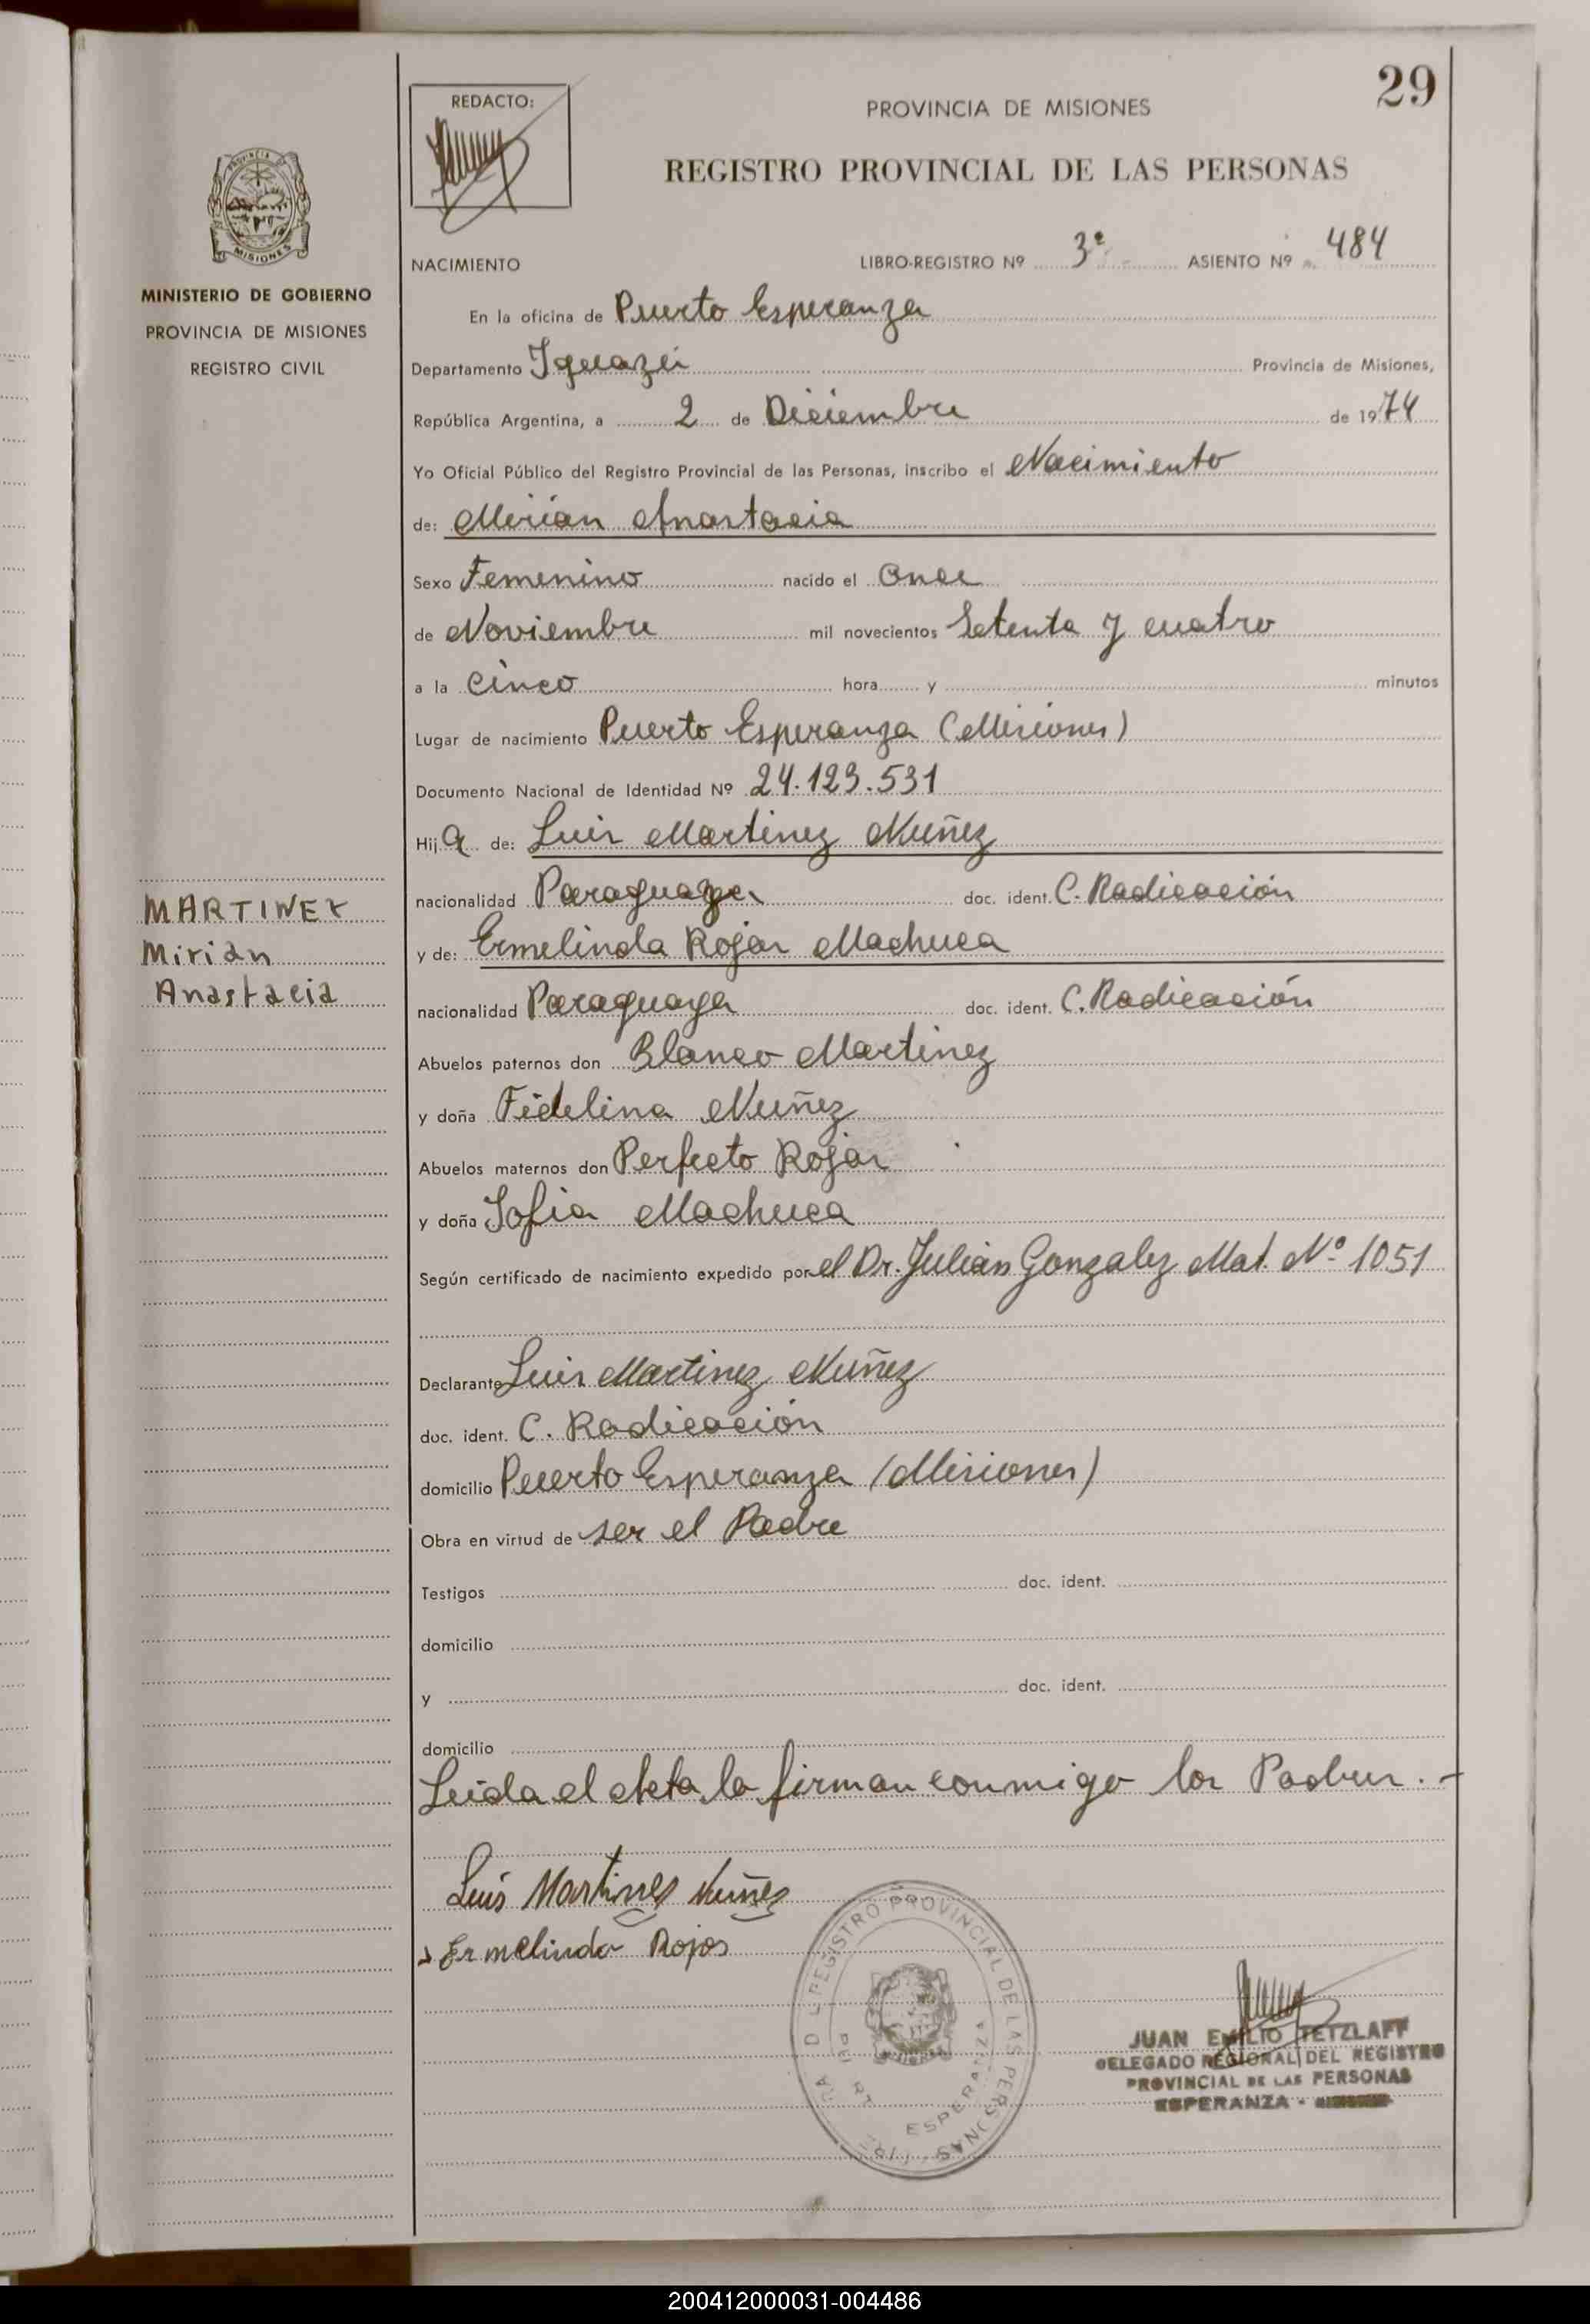 29
REDACTO:
PROVINCIA DE MISIONES
REGISTRO PROVINCIAL DE LAS PERSONAS
PROVINCIA DE
MISIONES
MINISTERIO DE GOBIERNO
PROVINCIA DE MISIONES
REGISTRO CIVIL
NACIMIENTO LIBRO-REGISTRO Nº 3º - ASIENTO Nº 484
En la oficina de Puerto Esperanza
Departamento Iguazú Provincia de Misiones,
República Argentina, a 2 de Diciembre de 1974
Yo Oficial Público del Registro Provincial de las Personas, inscribo el Nacimiento
de: Mirian Anastacia
Sexo Femenino nacido el Once
de Noviembre mil novecientos Setenta y cuatro
a la Cinco hora y minutos
Lugar de nacimiento Puerto Esperanza (Misiones)
Documento Nacional de Identidad Nº 24.123.531
Hija de: Luis Martinez Nuñez
nacionalidad Paraguaya doc. ident. C. Radicación
y de: Ermelinda Rojas Machuca
nacionalidad Paraguaya doc. ident. C. Radicación
MARTINEZ
Mirian
Anastacia
Abuelos paternos don Blanco Martinez
y doña Fidelina Nuñez
Abuelos maternos don Perfecto Rojas
y doña Sofia Machuca
Según certificado de nacimiento expedido por el Dr. Julián Gonzalez Mat. Nº 1051
Declarante Luis Martinez Nuñez
doc. ident. C. Radicación
domicilio Puerto Esperanza (Misiones)
Obra en virtud de ser el Padre
Testigos doc. ident.
domicilio
y doc. ident.
domicilio
Leida el Acta la firman conmigo los Padres. -
Luis Martines Nuñes
Ermelinda Rojas
REGISTRO PROVINCIAL DE LAS PERSONAS
ESPERANZA
MISIONES
JUAN EMILIO TETZLAFF
DELEGADO REGIONAL DEL REGISTRO
PROVINCIAL DE LAS PERSONAS
ESPERANZA -
200412000031-004486